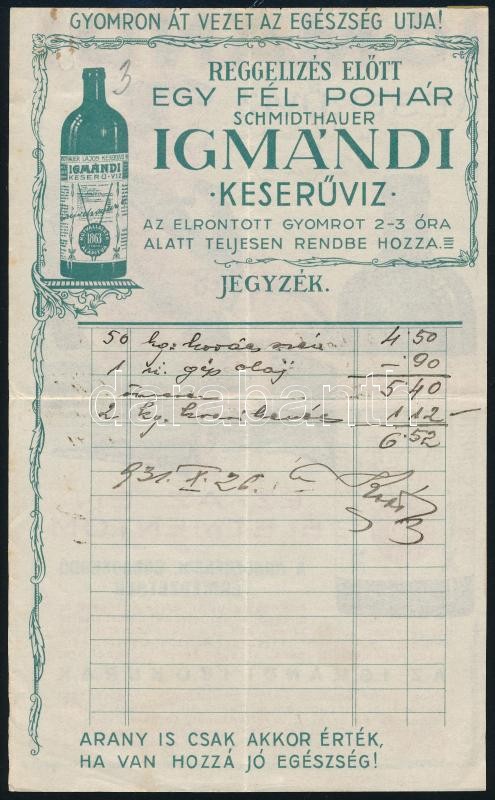 GYOMRON ÁT VEZET AZ EGÉSZSÉG UTJA!
3
REGGELIZÉS ELŐTT
EGY FÉL POHÁR
SCHMIDTHAUER
IGMÁNDI
·KESERŰVIZ·
AZ ELRONTOTT GYOMROT 2-3 ÓRA
ALATT TELJESEN RENDBE HOZZA.
IGMÁNDI
KESERŰ-VIZ
1863
JEGYZÉK.
50 kg. kovács szén 4 50
1 gép olaj – 90
5 40
2 kg. 1 12 –
6 52
931. X. 26.
darabanth
ARANY IS CSAK AKKOR ÉRTÉK,
HA VAN HOZZÁ JÓ EGÉSZSÉG!